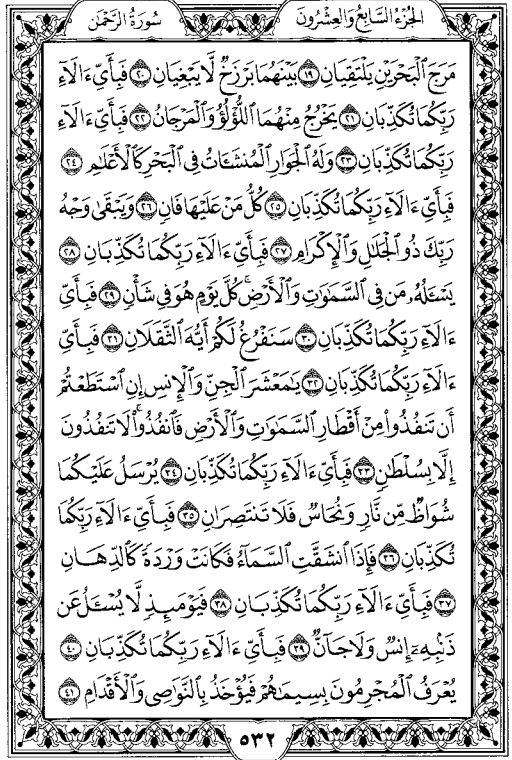 الجُزْءُ السَّابِعُ وَالعِشْرُونَ
سُورَةُ الرَّحْمَٰن
مَرَجَ ٱلْبَحْرَيْنِ يَلْتَقِيَانِ ١٩ بَيْنَهُمَا بَرْزَخٌ لَّا يَبْغِيَانِ ٢٠ فَبِأَيِّ ءَالَآءِ
رَبِّكُمَا تُكَذِّبَانِ ٢١ يَخْرُجُ مِنْهُمَا ٱللُّؤْلُؤُ وَٱلْمَرْجَانُ ٢٢ فَبِأَيِّ ءَالَآءِ
رَبِّكُمَا تُكَذِّبَانِ ٢٣ وَلَهُ ٱلْجَوَارِ ٱلْمُنشَـَٔاتُ فِى ٱلْبَحْرِ كَٱلْأَعْلَٰمِ ٢٤
فَبِأَيِّ ءَالَآءِ رَبِّكُمَا تُكَذِّبَانِ ٢٥ كُلُّ مَنْ عَلَيْهَا فَانٍ ٢٦ وَيَبْقَىٰ وَجْهُ
رَبِّكَ ذُو ٱلْجَلَٰلِ وَٱلْإِكْرَامِ ٢٧ فَبِأَيِّ ءَالَآءِ رَبِّكُمَا تُكَذِّبَانِ ٢٨
يَسْـَٔلُهُۥ مَن فِى ٱلسَّمَٰوَٰتِ وَٱلْأَرْضِ ۚ كُلَّ يَوْمٍ هُوَ فِى شَأْنٍ ٢٩ فَبِأَيِّ
ءَالَآءِ رَبِّكُمَا تُكَذِّبَانِ ٣٠ سَنَفْرُغُ لَكُمْ أَيُّهَ ٱلثَّقَلَانِ ٣١ فَبِأَيِّ
ءَالَآءِ رَبِّكُمَا تُكَذِّبَانِ ٣٢ يَٰمَعْشَرَ ٱلْجِنِّ وَٱلْإِنسِ إِنِ ٱسْتَطَعْتُمْ
أَن تَنفُذُوا۟ مِنْ أَقْطَارِ ٱلسَّمَٰوَٰتِ وَٱلْأَرْضِ فَٱنفُذُوا۟ ۚ لَا تَنفُذُونَ
إِلَّا بِسُلْطَٰنٍ ٣٣ فَبِأَيِّ ءَالَآءِ رَبِّكُمَا تُكَذِّبَانِ ٣٤ يُرْسَلُ عَلَيْكُمَا
شُوَاظٌ مِّن نَّارٍ وَنُحَاسٌ فَلَا تَنتَصِرَانِ ٣٥ فَبِأَيِّ ءَالَآءِ رَبِّكُمَا
تُكَذِّبَانِ ٣٦ فَإِذَا ٱنشَقَّتِ ٱلسَّمَآءُ فَكَانَتْ وَرْدَةً كَٱلدِّهَانِ
٣٧ فَبِأَيِّ ءَالَآءِ رَبِّكُمَا تُكَذِّبَانِ ٣٨ فَيَوْمَئِذٍ لَّا يُسْـَٔلُ عَن
ذَنۢبِهِۦٓ إِنسٌ وَلَا جَآنٌّ ٣٩ فَبِأَيِّ ءَالَآءِ رَبِّكُمَا تُكَذِّبَانِ ٤٠
يُعْرَفُ ٱلْمُجْرِمُونَ بِسِيمَٰهُمْ فَيُؤْخَذُ بِٱلنَّوَٰصِى وَٱلْأَقْدَامِ ٤١
٥٣٢